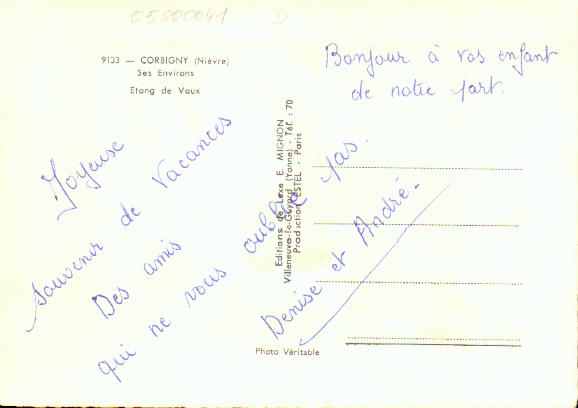 05800041 D
9133 — CORBIGNY (Nièvre)
Ses Environs
Etang de Vaux
Bonjour à vos enfant
de notre part.
Joyeuse
souvenir de Vacances
Des amis
qui ne vous oublie pas.
Denise et André.
Editions de Luxe E. MIGNON
Villeneuve-la-Guyard (Yonne) - Tél. : 70
Production ESTEL - Paris
Photo Véritable